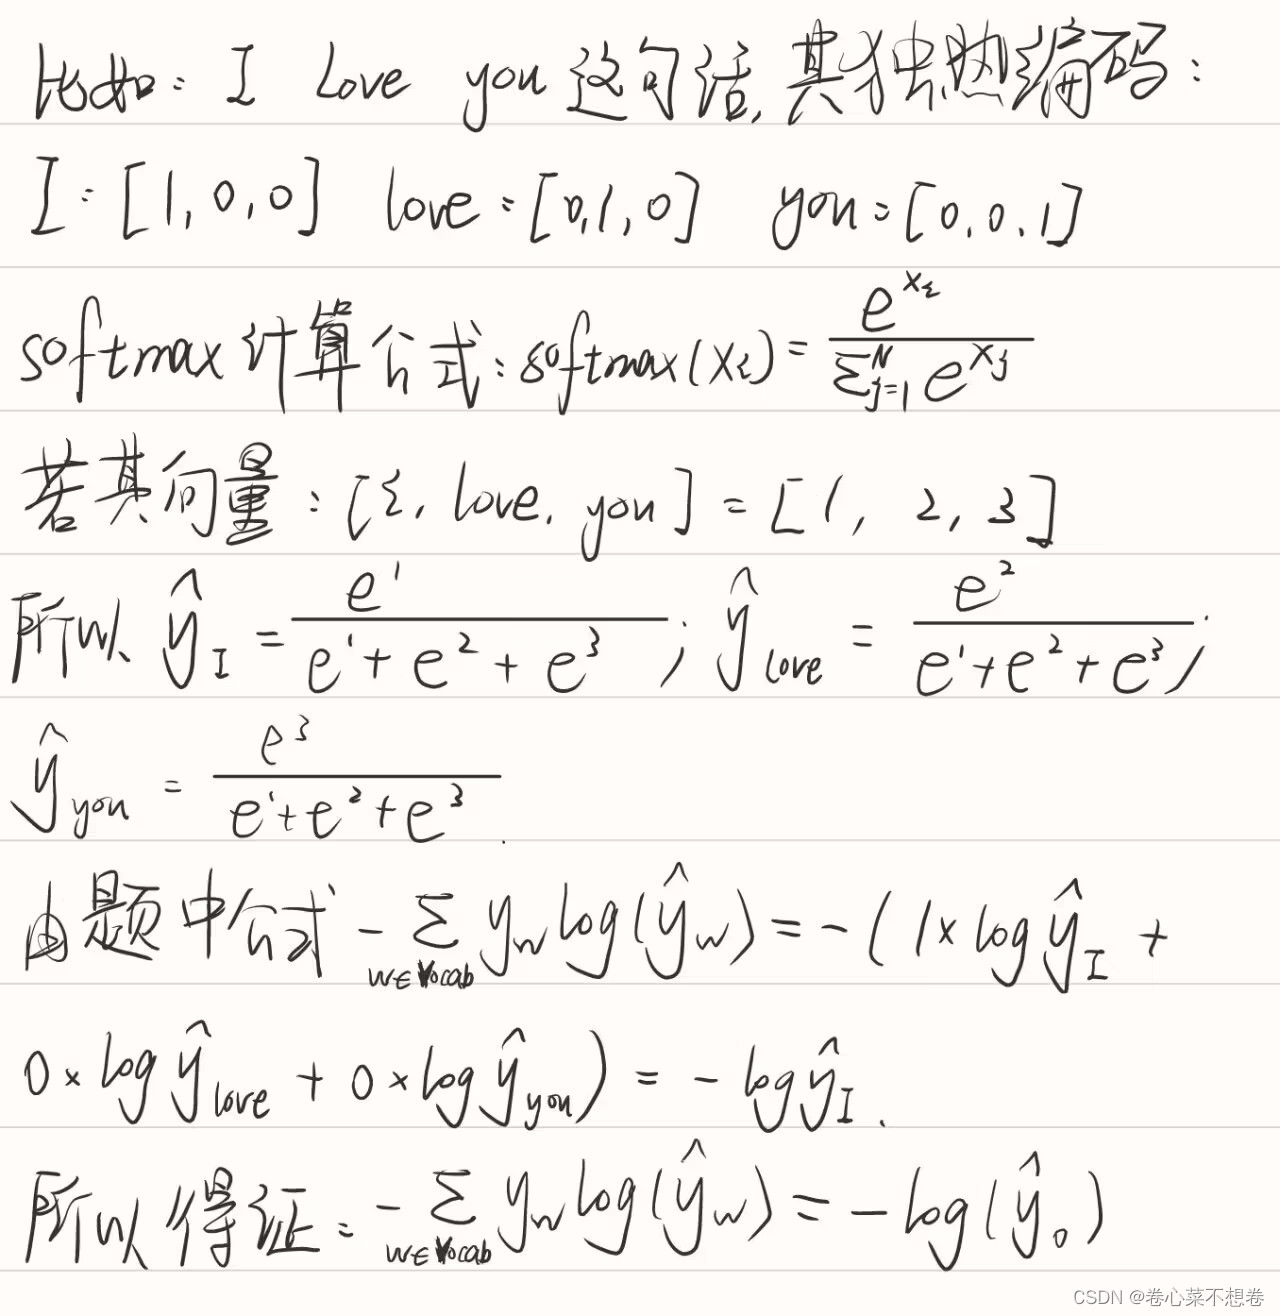 比如: I love you 这句话,其独热编码:
I: [1, 0, 0] love: [0, 1, 0] you: [0, 0, 1]
softmax 计算公式: softmax(xᵢ) = e^{xᵢ} / Σ_{j=1}^{N} e^{xⱼ}
若其向量: [i, love, you] = [1, 2, 3]
所以 ŷ_I = e^1 / (e^1 + e^2 + e^3); ŷ_love = e^2 / (e^1 + e^2 + e^3);
ŷ_you = e^3 / (e^1 + e^2 + e^3).
由题中公式 - Σ_{w∈Vocab} y_w log(ŷ_w) = - (1 × log ŷ_I +
0 × log ŷ_love + 0 × log ŷ_you) = - log ŷ_I.
所以得证: - Σ_{w∈Vocab} y_w log(ŷ_w) = - log(ŷ_o)
CSDN @卷心菜不想卷